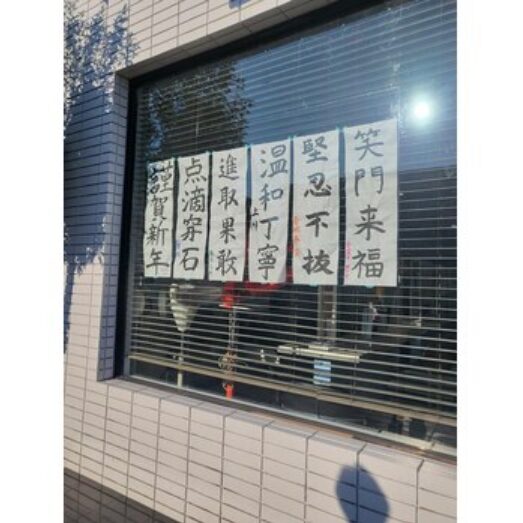 笑門来福
堅忍不抜
温和丁寧
進取果敢
点滴穿石
謹賀新年